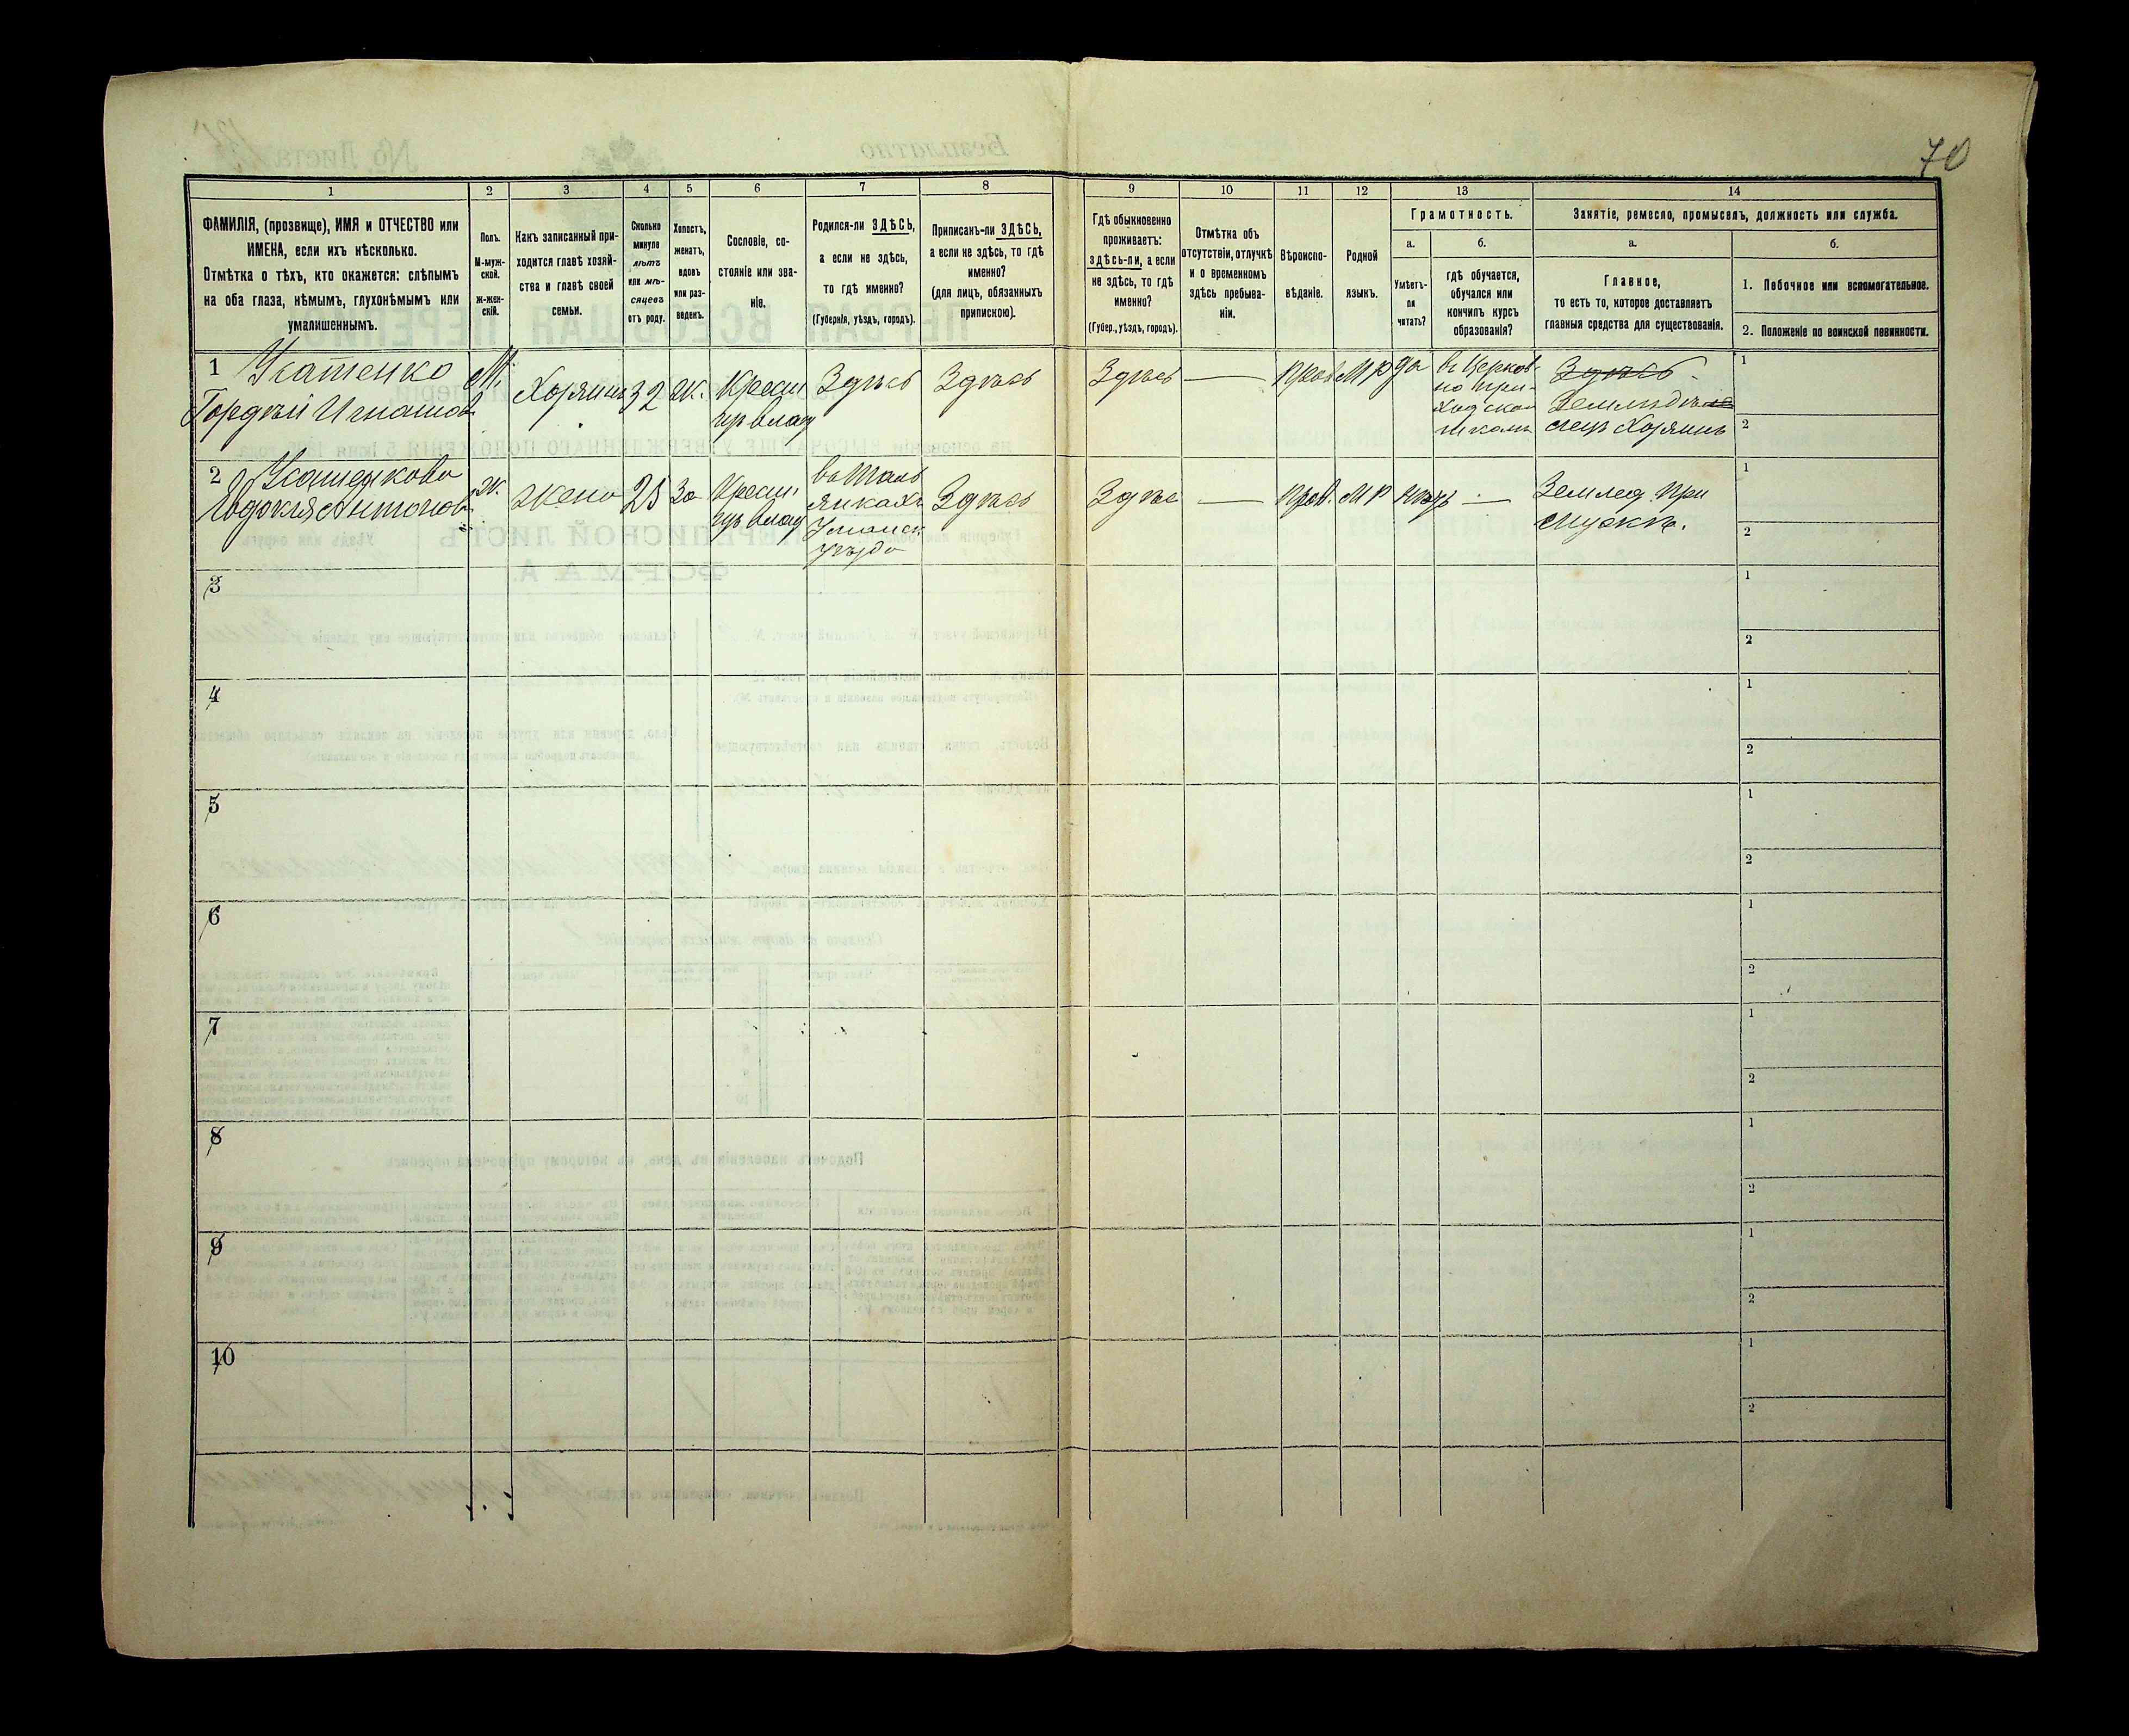 70
1 2 3 4 5 6 7 8 9 10 11 12 13 14
ФАМИЛІЯ, (прозвище), ИМЯ и ОТЧЕСТВО или
ИМЕНА, если ихъ нѣсколько.
Отмѣтка о тѣхъ, кто окажется: слѣпымъ
на оба глаза, нѣмымъ, глухонѣмымъ или
умалишеннымъ.
Полъ.
М-муж-
ской.
Ж-жен-
скій.
Какъ записанный при-
ходится главѣ хозяй-
ства и главѣ своей
семьи.
Сколько
минуло
лѣтъ
или мѣ-
сяцевъ
отъ роду.
Холостъ,
женатъ,
вдовъ
или раз-
веденъ.
Сословіе, со-
стояніе или зва-
ніе.
Родился-ли ЗДѢСЬ,
а если не здѣсь,
то гдѣ именно?
(Губернія, уѣздъ, городъ).
Приписанъ-ли ЗДѢСЬ,
а если не здѣсь, то гдѣ
именно?
(для лицъ, обязанныхъ
припискою).
Гдѣ обыкновенно
проживаетъ:
здѣсь-ли, а если
не здѣсь, то гдѣ
именно?
(Губер., уѣздъ, городъ).
Отмѣтка объ
отсутствіи, отлучкѣ
и о временномъ
здѣсь пребыва-
ніи.
Вѣроиспо-
вѣданіе.
Родной
языкъ.
Грамотность.
а.
Умѣетъ-
ли
читать?
б.
гдѣ обучается,
обучался или
кончилъ курсъ
образованія?
Занятіе, ремесло, промыселъ, должность или служба.
а.
Главное,
то есть то, которое доставляетъ
главныя средства для существованія.
б.
1. Побочное или вспомогательное.
2. Положеніе по воинской повинности.
1
Гордѣй Игнатов
М.
Хозяинъ
32
ж.
Крест.
Здѣсь
Здѣсь
Здѣсь
—
прав
М Р
да
въ Церков-
но при-
ходской
школѣ
Здѣсь
Земледѣ
лецъ Хозяинъ
1
2
2
Евдокія Антонов
ж.
жена
25
за
Крест.
Уманск
уѣзда
Здѣсь
Здѣсь
—
прав.
М Р
нѣтъ
—
Землед. при
мужѣ.
1
2
3
1
2
4
1
2
5
1
2
6
1
2
7
1
2
8
1
2
9
1
2
10
1
2